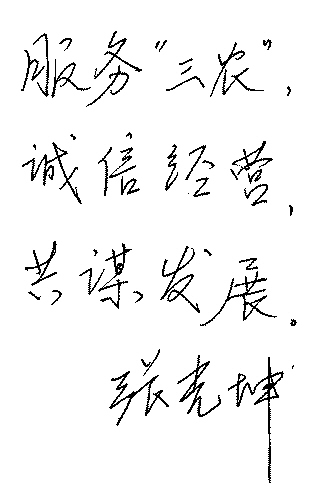 服务“三农”，
诚信经营，
共谋发展。
张克坤